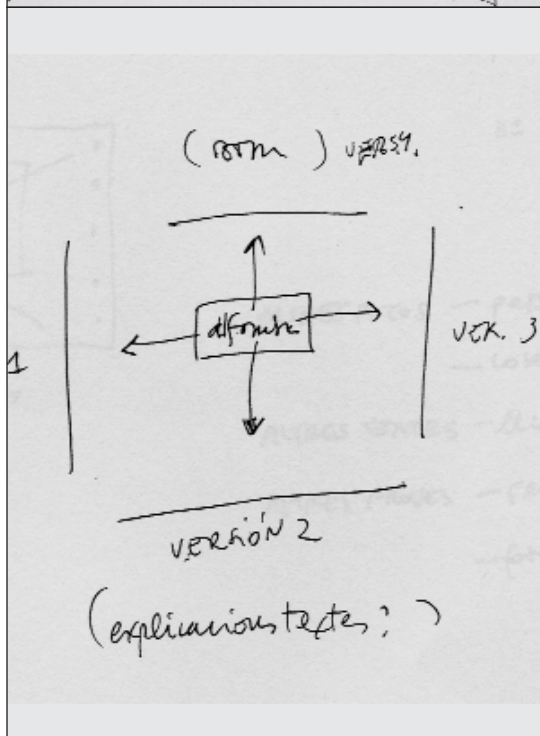 (room) VERS 4.
alfombra
1
VER. 3
VERSIÓN 2
(explicacions textes?)